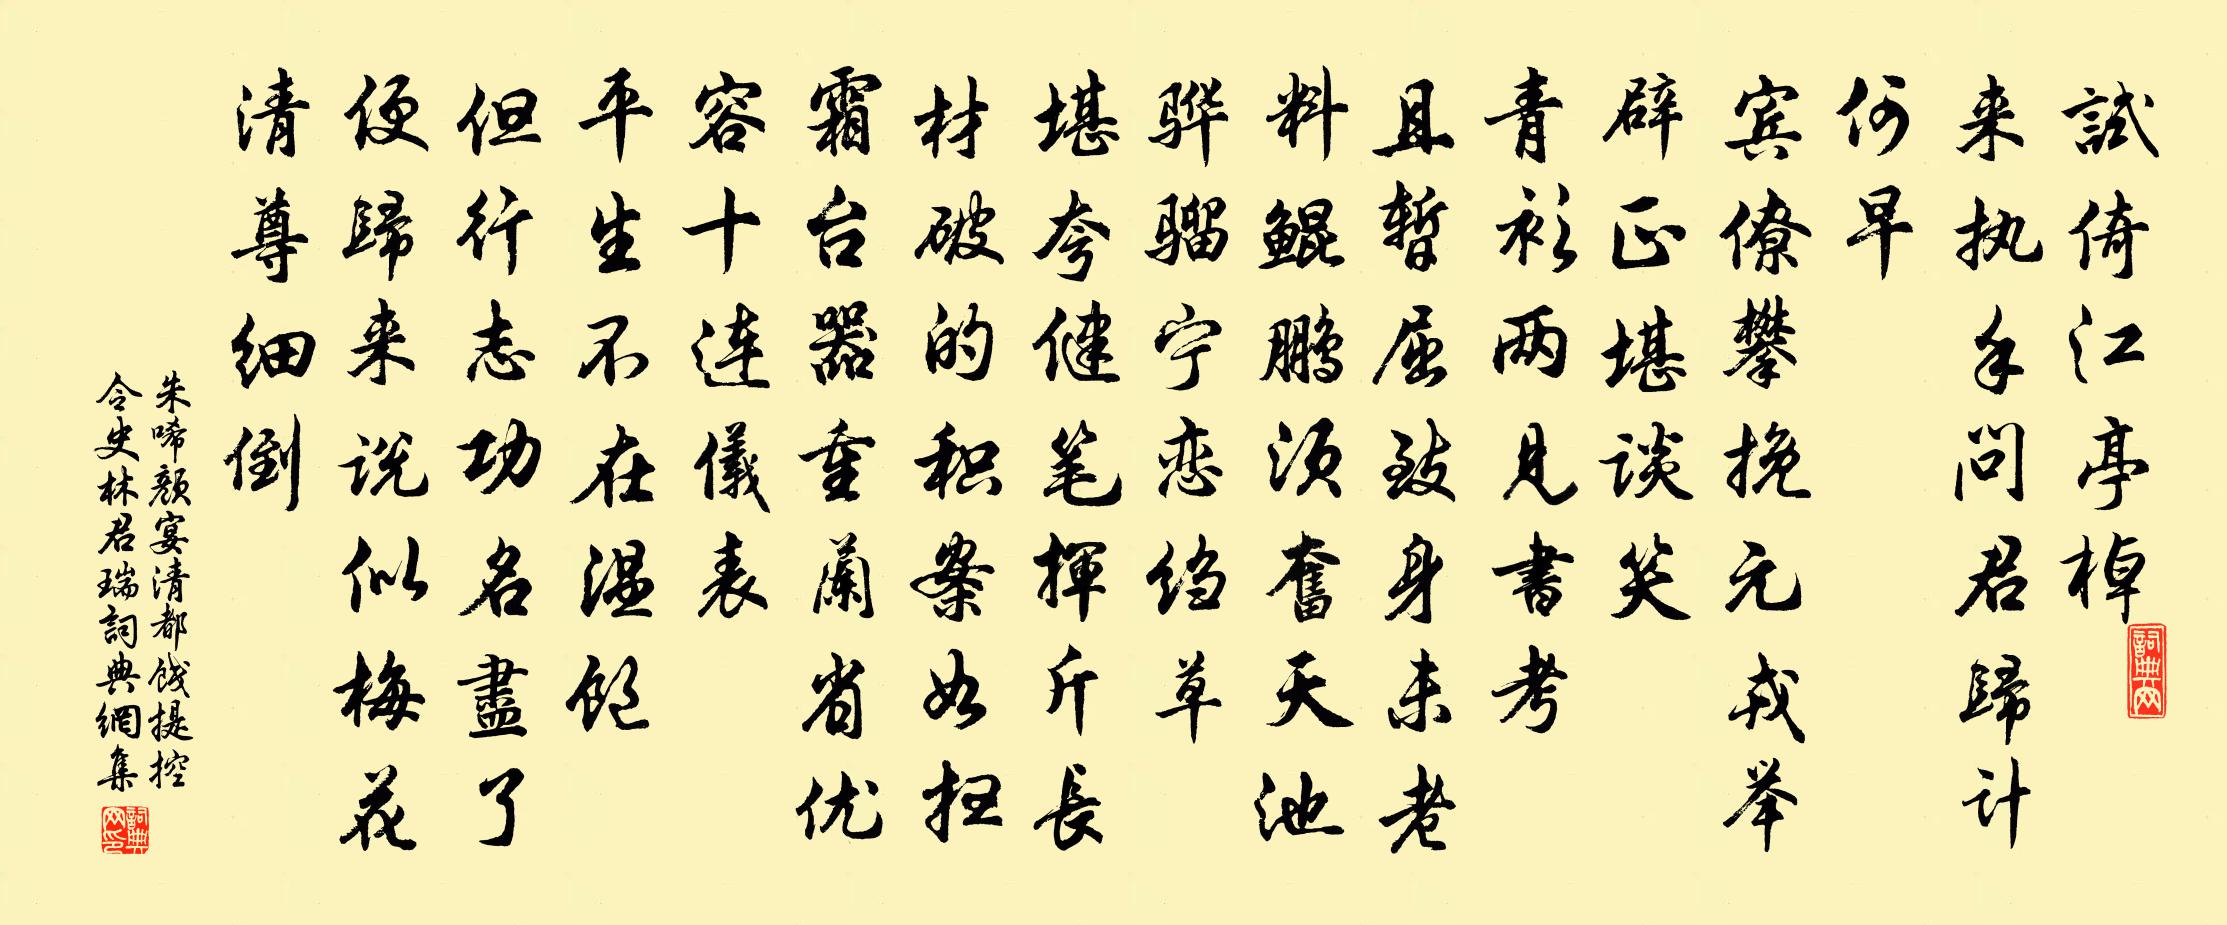 試倚江亭棹
来执手问君歸计
何早
宾僚攀挽元戎举
辟正堪谈笑
青衫两见書考
且暫屈致身未老
料鲲鹏须奮天池
骅骝宁恋绉草
堪夸健笔揮斤長
材破的积案如扫
霜台器重蘭省优
容十连儀表
平生不在温饱
但行志功名盡了
便歸来说似梅花
清尊细倒
朱唏颜宴清都饯提控
令史林君瑞詞典網集
詞典网
詞典网印